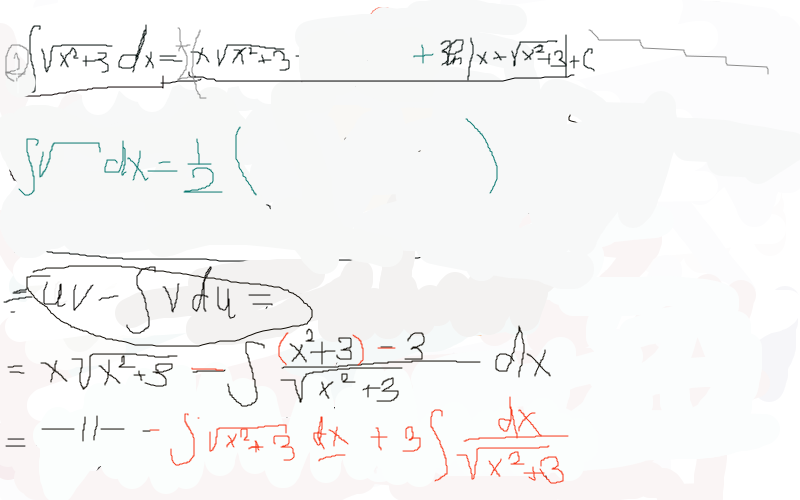 ① ∫√x²+3 dx = x√x²+3 + 3 |x+√x²+3|+C
∫√ dx = 1/2 ( )
= uv - ∫ v du =
= x√x²+3 - ∫ (x²+3) - 3 / √x²+3 dx
= —||— - ∫√x²+3 dx + 3∫ dx / √x²+3